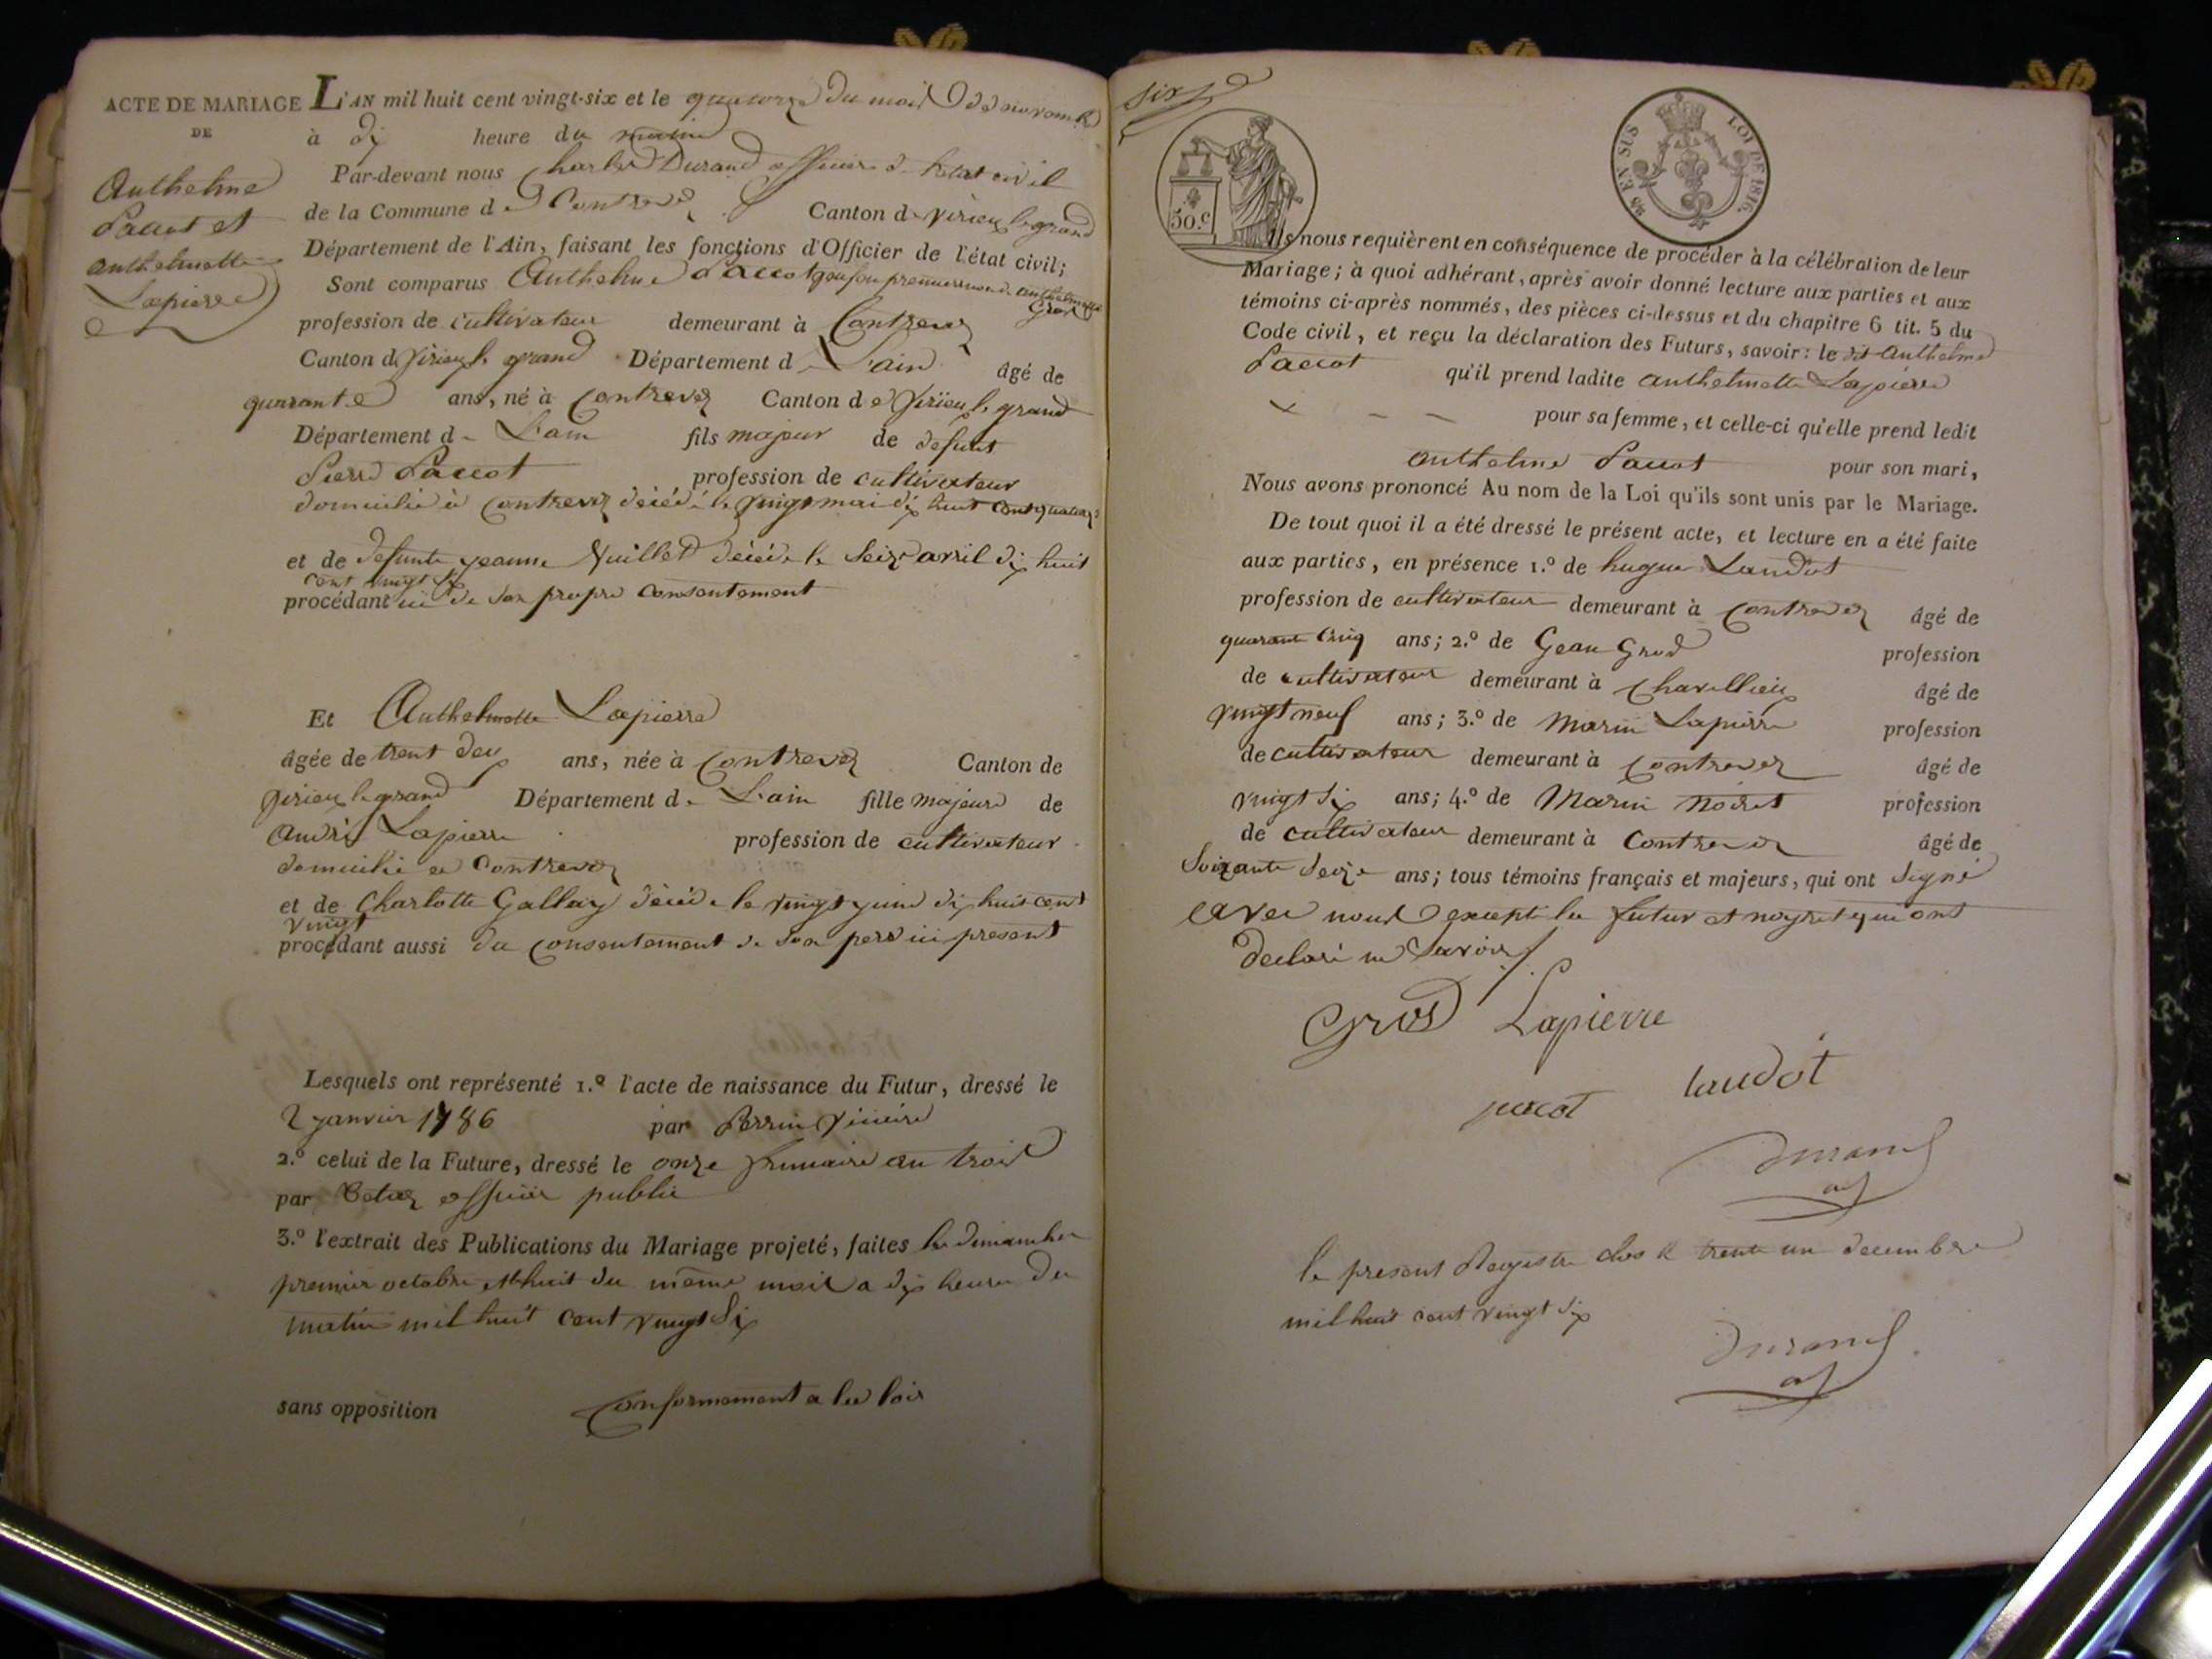 ACTE DE MARIAGE
DE
Anthelme
Paccot et
anthelmette
Lapierre
L'AN mil huit cent vingt-six et le quatorze du mois de novembre
à dix heure du matin
Par-devant nous Charles Durand officier de l'état civil
de la Commune de Contrevez Canton de virieu le grand
Département de l'Ain, faisant les fonctions d'Officier de l'état civil;
Sont comparus Anthelme Paccot premiere anthelmette
Gros
profession de cultivateur demeurant à Contrevez
Canton de virieu le grand Département de L'ain âgé de
quarante ans, né à Contrevez Canton de virieu le grand
Département de L'ain fils majeur de defunt
Pierre Paccot profession de cultivateur
domicilié à Contrevez décédé le vingt mai dix huit cent
et de defunte jeanne Vuillet décédée le seize avril dix huit
cent vingt six
procédant ici de son propre consentement
Et Anthelmette Lapierre
âgée de trent deux ans, née à Contrevez Canton de
virieu le grand Département de L'ain fille majeure de
André Lapierre profession de cultivateur
domicilié a Contrevez
et de Charlotte Gallay décédée le vingt juin dix huit cent
vingt
procédant aussi du consentement de son pere ici present
Lesquels ont représenté 1.º l'acte de naissance du Futur, dressé le
2 janvier 1786 par Perrin vicaire
2.º celui de la Future, dressé le onze frimaire an trois
par officier public
3.º l'extrait des Publications du Mariage projeté, faites les dimanches
premier octobre et huit du même mois a dix heures du
matin mil huit cent vingt six
sans opposition Conformement a les lois
six
50.c
25 EN SUS
LOI DE 1816.
Ils nous requièrent en conséquence de procéder à la célébration de leur
Mariage; à quoi adhérant, après avoir donné lecture aux parties et aux
témoins ci-après nommés, des pièces ci-dessus et du chapitre 6 tit. 5 du
Code civil, et reçu la déclaration des Futurs, savoir: le dit Anthelme
Paccot qu'il prend ladite anthelmette Lapierre
pour sa femme, et celle-ci qu'elle prend ledit
anthelme Paccot pour son mari,
Nous avons prononcé Au nom de la Loi qu'ils sont unis par le Mariage.
De tout quoi il a été dressé le présent acte, et lecture en a été faite
aux parties, en présence 1.º de hugue Laudot
profession de cultivateur demeurant à Contrevez âgé de
quarante cinq ans; 2.º de Gean Gros profession
de cultivateur demeurant à Charillieu âgé de
vingt neuf ans; 3.º de Marin Lapierre profession
de cultivateur demeurant à Contrevez âgé de
vingt six ans; 4.º de Marin Noiret profession
de cultivateur demeurant à Contrevez âgé de
Soixante Seize ans; tous témoins français et majeurs, qui ont signé
avec nous excepté la futur et noyret qui ont
declaré ne savoir
Gros Lapierre
laudot
pacot
Durand
le present Registre clos le trente un decembre
mil huit cent vingt six
Durand